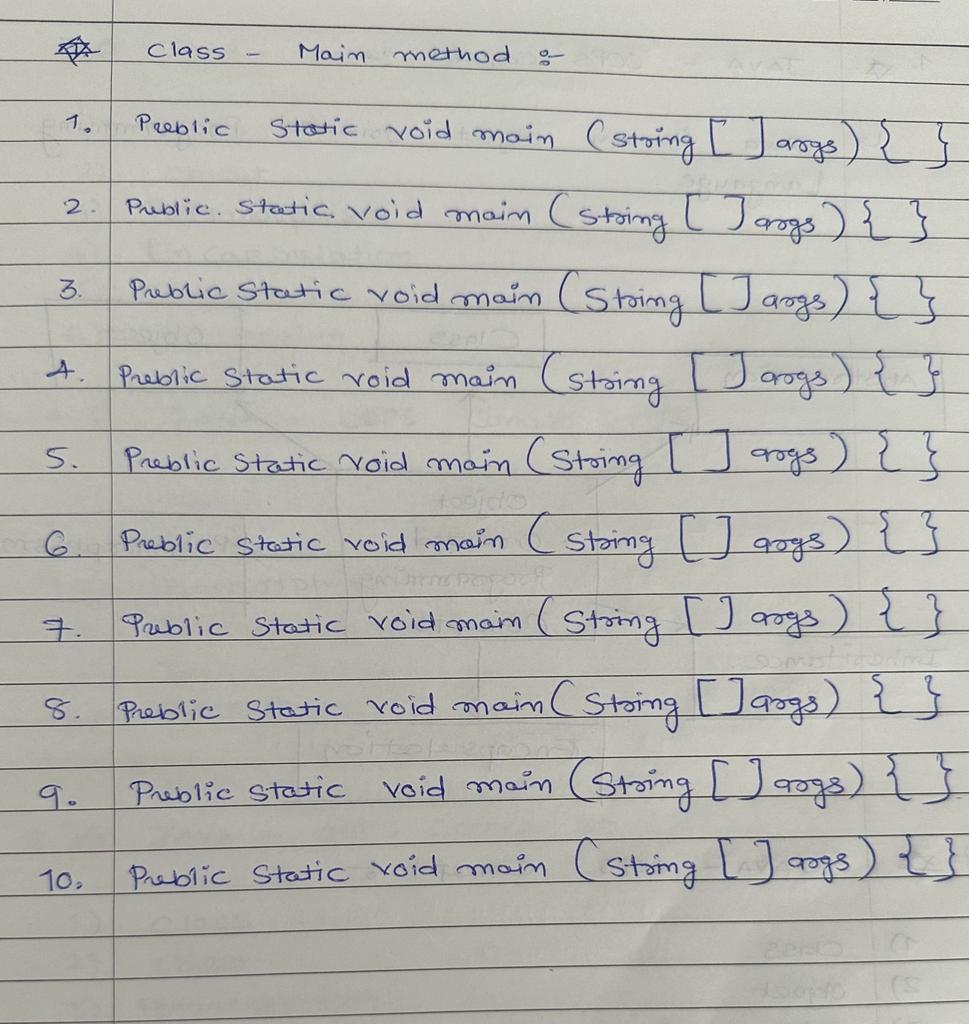 Class - Main method :-
1. Public Static void main (String [ ] args) { }
2. Public. Static. void main (String [ ] args) { }
3. Public Static void main (String [ ] args) { }
4. Public Static void main (String [ ] args) { }
5. Public Static void main (String [ ] args) { }
6. Public Static void main (String [ ] args) { }
7. Public Static void main (String [ ] args) { }
8. Public Static void main (String [ ] args) { }
9. Public Static void main (String [ ] args) { }
10. Public Static void main (String [ ] args) { }